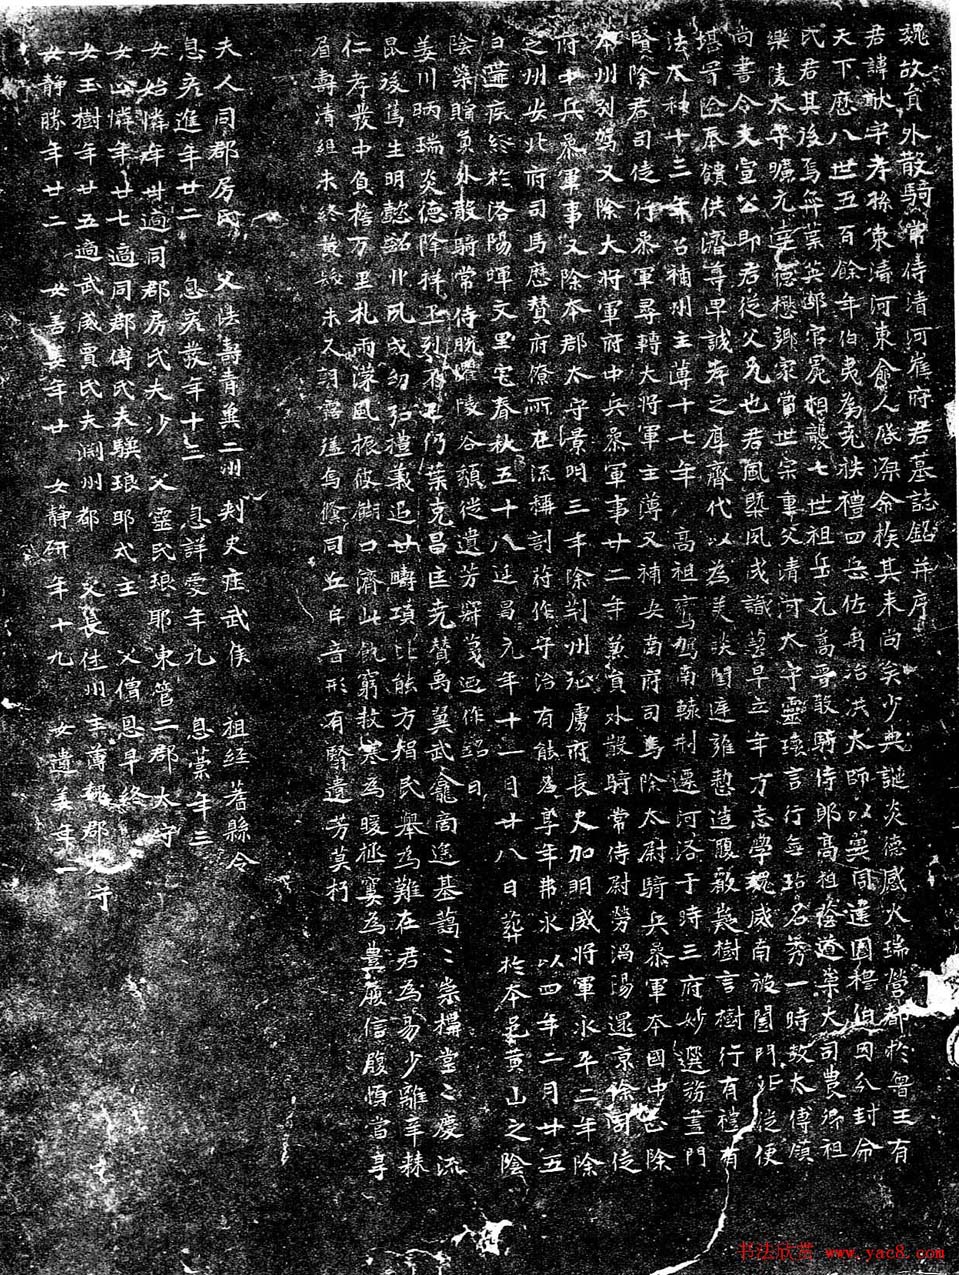 魏故員外散騎常侍清河崔府君墓誌銘并序
君諱猷字孝孫東清河東俞人啓源命族其來尚矣少典誕炎德感火瑞營都於魯王有
天下歷八世五百餘年伯夷為堯秩禮四岳佐禹治洪大師以翼周建國穆伯因分封命
氏君其後焉弈葉英邵官冕相襲七世祖岳元嘉晉散騎侍郎高祖蔭道崇大司農卿祖
樂陵太守曠元達德懋鄉家當世宗重父清河太守靈瓌言行無玷名秀一時故太傅領
尚書令文宣公即君從父兄也君風槩夙成識藝早立年方志學魏威南被閨門北從便
堪冒險奉饋供濟尊卑誠孝之厚齊代以為美談閨庭雍懃造履敬義樹言樹行有禮有
法太和十三年召補州主薄十七年 高祖鸞駕南轅荊遷河洛于時三府妙選務盡門
賢除君司徒行叅軍尋轉大將軍主薄又補安南府司馬除太尉騎兵叅軍本國中正除
本州別駕又除大將軍府中兵叅軍事廿二年兼員外散騎常侍尉勞渦陽還京除司徒
府中兵叅軍事又除本郡太守景明三年除荊州征虜府長史加明威將軍永平二年除
之州安北府司馬歷贊府僚所在流稱剖符作守治有能名享年弗永以四年二月廿五
日遘疾終於洛陽暉文里宅春秋五十八延昌元年十一月廿八日葬於本邑黃山之陰
陰樂贈員外散騎常侍既懼陵谷頹從遺芳歇蔑迺作銘曰
姜川昞瑞炎德降祥丕烈不弈乃葉克昌匡堯贊禹翼武龕商遙基藹〻崇構堂〻慶流
昆後篤生明懿韶卝夙成幼弘禮義追廿疇項比能方賜民舉為難在君為易少離辛棘
仁孝發中負檐万里札雨濛風振彼餬口濟此飢窮救寒為暖拯寠為豊履信履順當享
眉壽清組未終黃髮未又詞露猛焉儵同丘阜音形有賢遺芳莫朽
夫人同郡房氏 父法壽青冀二州刾史莊武侯 祖經著縣令
息彥進年廿二 息彥發年十二 息詳愛年九 息蒙年三
女始憐年卅適同郡房氏夫沙 父靈民琅耶東管二郡太守
女止憐年廿七適同郡傅氏夫驥琅耶戍主 父僧恩早終
女玉樹年廿五適武威賈氏夫淵州都 父長休州主薄魏郡太守
女靜勝年廿二 女善姜年廿 女靜研年十九 女遺姜年二
书法欣赏 www.yac8.com